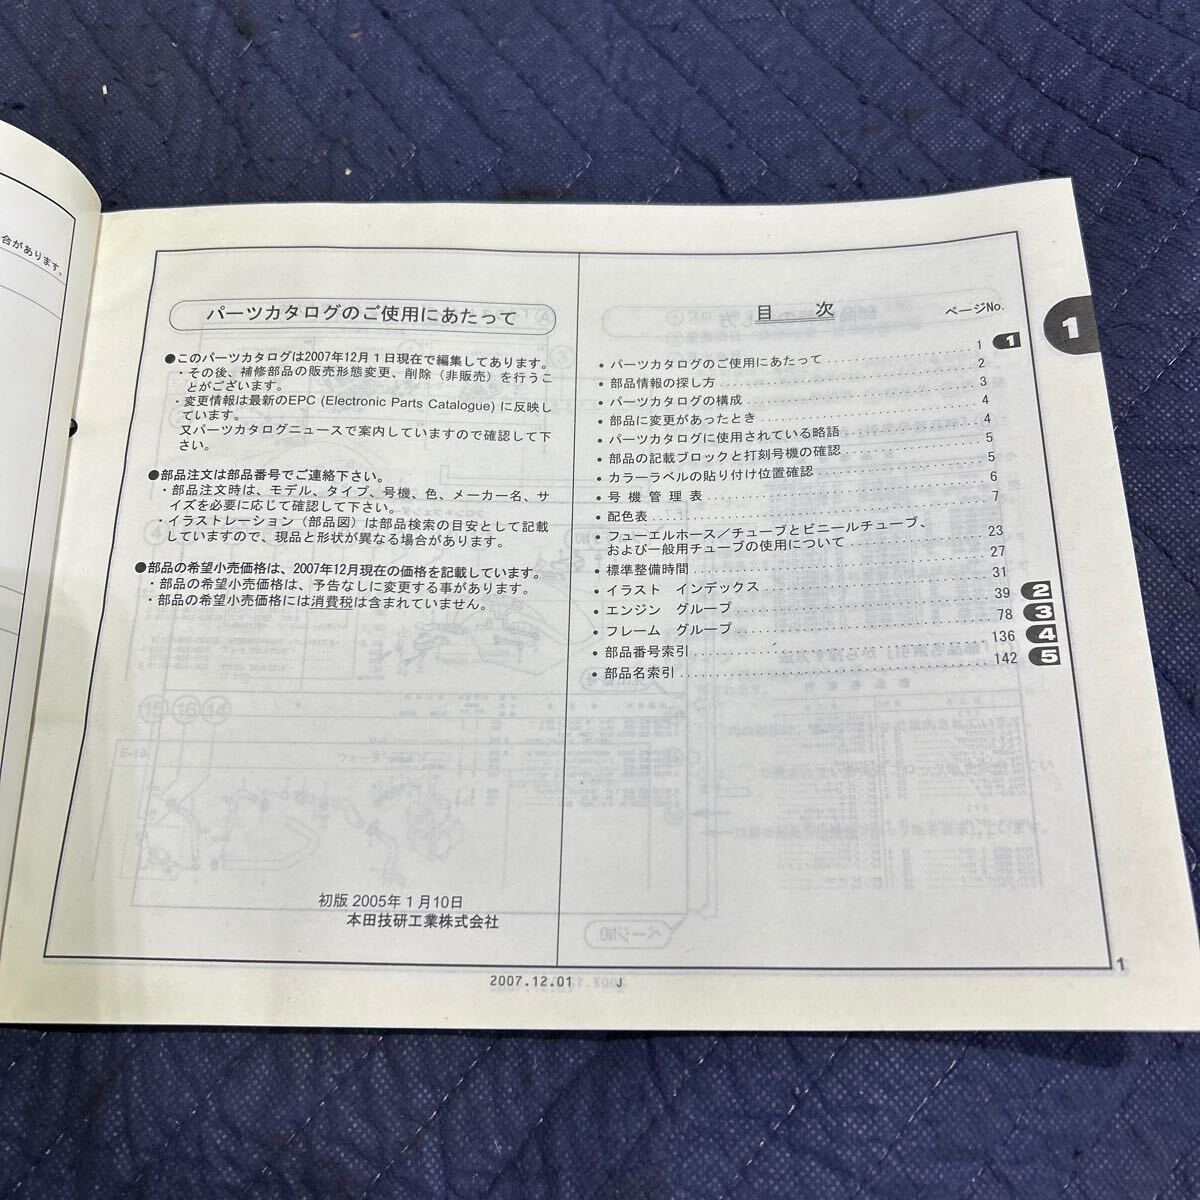 合があります。
パーツカタログのご使用にあたって
●このパーツカタログは2007年12月1日現在で編集してあります。
・その後、補修部品の販売形態変更、削除（非販売）を行うこ
とがございます。
・変更情報は最新のEPC (Electronic Parts Catalogue) に反映し
ています。
又パーツカタログニュースで案内していますので確認して下
さい。
●部品注文は部品番号でご連絡下さい。
・部品注文時は、モデル、タイプ、号機、色、メーカー名、サ
イズを必要に応じて確認して下さい。
・イラストレーション（部品図）は部品検索の目安として記載
していますので、現品と形状が異なる場合があります。
●部品の希望小売価格は、2007年12月現在の価格を記載しています。
・部品の希望小売価格は、予告なしに変更する事があります。
・部品の希望小売価格には消費税は含まれていません。
初版 2005年1月10日
本田技研工業株式会社
目　次　ページNo.
• パーツカタログのご使用にあたって 1 1
• 部品情報の探し方 2
• パーツカタログの構成 3
• 部品に変更があったとき 4
• パーツカタログに使用されている略語 4
• 部品の記載ブロックと打刻号機の確認 5
• カラーラベルの貼り付け位置確認 5
• 号機管理表 6
• 配色表 7
• フューエルホース／チューブとビニールチューブ、
および一般用チューブの使用について 23
• 標準整備時間 27
• イラスト　インデックス 31
• エンジン　グループ 39 2
• フレーム　グループ 78 3
• 部品番号索引 136 4
• 部品名索引 142 5
1
1
2007.12.01 J